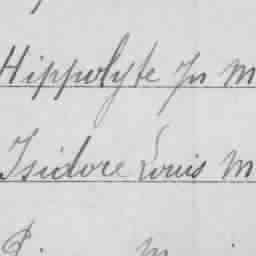 Hippolyte Jn M
Isidore Louis M